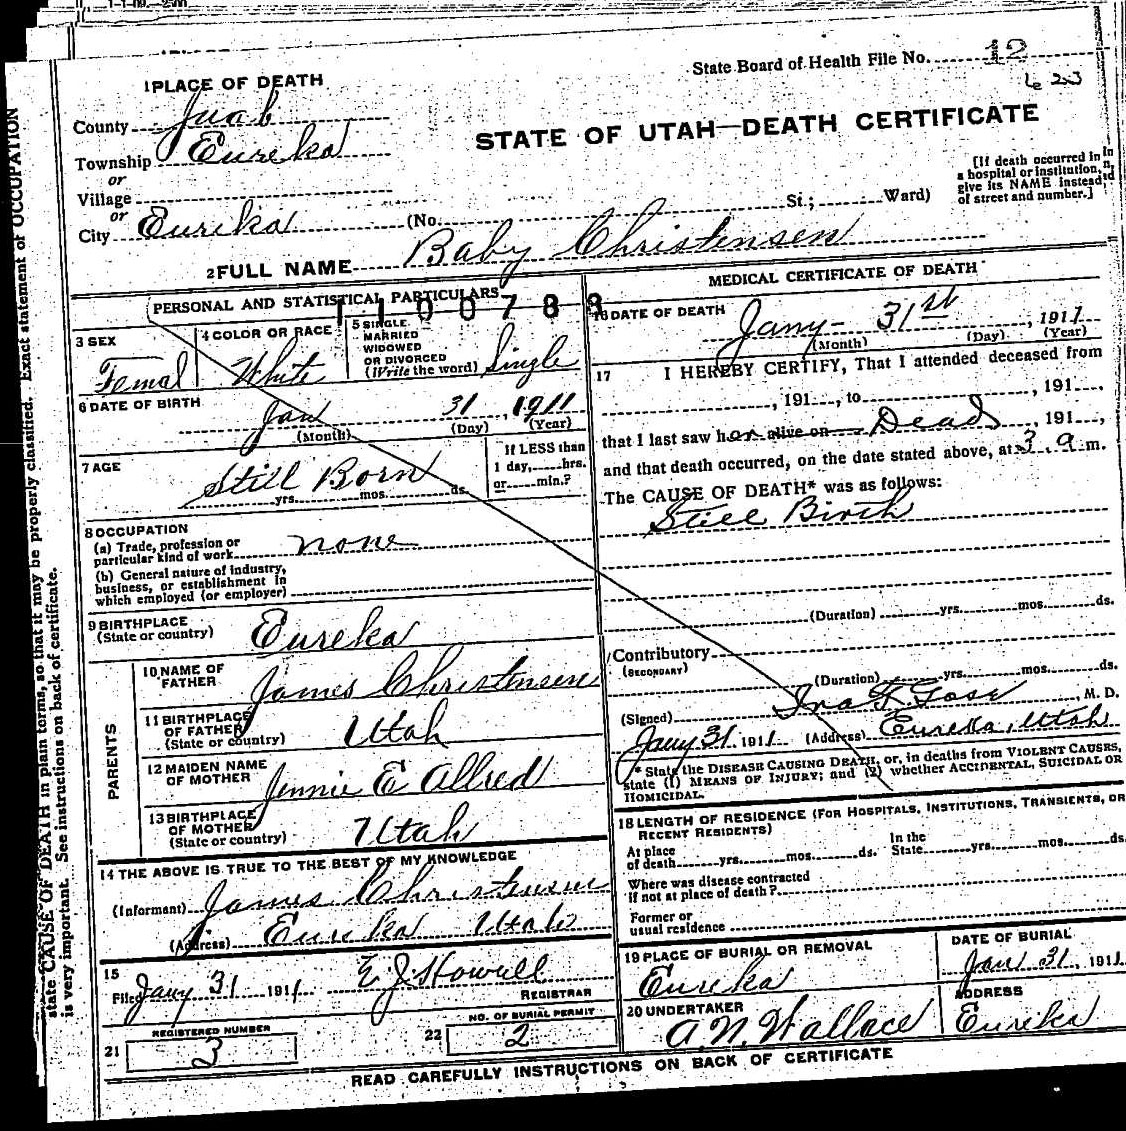 1-1-09.—2500
State Board of Health File No. 12
623
1 PLACE OF DEATH
County Juab
STATE OF UTAH—DEATH CERTIFICATE
Township Eureka
or
Village
or
City Eureka (No. St.; Ward)
[If death occurred in
a hospital or institution,
give its NAME instead
of street and number.]
2 FULL NAME Baby Christensen
PERSONAL AND STATISTICAL PARTICULARS
1100788
3 SEX
Femal
4 COLOR OR RACE
White
5 SINGLE
MARRIED
WIDOWED
OR DIVORCED
(Write the word) Single
6 DATE OF BIRTH
Jan 31, 1911
(Month) (Day) (Year)
7 AGE
Still Born
yrs. mos. ds.
If LESS than
1 day, hrs.
or min.?
8 OCCUPATION
(a) Trade, profession or
particular kind of work none
(b) General nature of industry,
business, or establishment in
which employed (or employer)
9 BIRTHPLACE
(State or country) Eureka
PARENTS
10 NAME OF
FATHER James Christensen
11 BIRTHPLACE
OF FATHER
(State or country) Utah
12 MAIDEN NAME
OF MOTHER Jennie E Allred
13 BIRTHPLACE
OF MOTHER
(State or country) Utah
14 THE ABOVE IS TRUE TO THE BEST OF MY KNOWLEDGE
(Informant) James Christensen
(Address) Eureka Utah
15
Filed Jany 31 1911 E J Howell
REGISTRAR
REGISTERED NUMBER
21 3
NO. OF BURIAL PERMIT
22 2
MEDICAL CERTIFICATE OF DEATH
16 DATE OF DEATH
Jany- 31st, 1911
(Month) (Day) (Year)
17 I HEREBY CERTIFY, That I attended deceased from
, 191, to , 191,
that I last saw her alive on Dead, 191,
and that death occurred, on the date stated above, at 3.9 m.
The CAUSE OF DEATH* was as follows:
Still Birth
(Duration) yrs. mos. ds.
Contributory
(SECONDARY)
(Duration) yrs. mos. ds.
(Signed) M. D.
Jany 31. 1911 (Address) Eureka, Utah
* State the DISEASE CAUSING DEATH, or, in deaths from VIOLENT CAUSES,
state (1) MEANS OF INJURY; and (2) whether ACCIDENTAL, SUICIDAL OR
HOMICIDAL.
18 LENGTH OF RESIDENCE (FOR HOSPITALS, INSTITUTIONS, TRANSIENTS, OR
RECENT RESIDENTS)
At place
of death yrs. mos. ds.
In the
State yrs. mos. ds.
Where was disease contracted
if not at place of death?
Former or
usual residence
19 PLACE OF BURIAL OR REMOVAL
Eureka
DATE OF BURIAL
Jan 31, 1911
20 UNDERTAKER
A. N. Wallace
ADDRESS
Eureka
READ CAREFULLY INSTRUCTIONS ON BACK OF CERTIFICATE
state CAUSE OF DEATH in plain terms, so that it may be properly classified. Exact statement of OCCUPATION
is very important. See instructions on back of certificate.